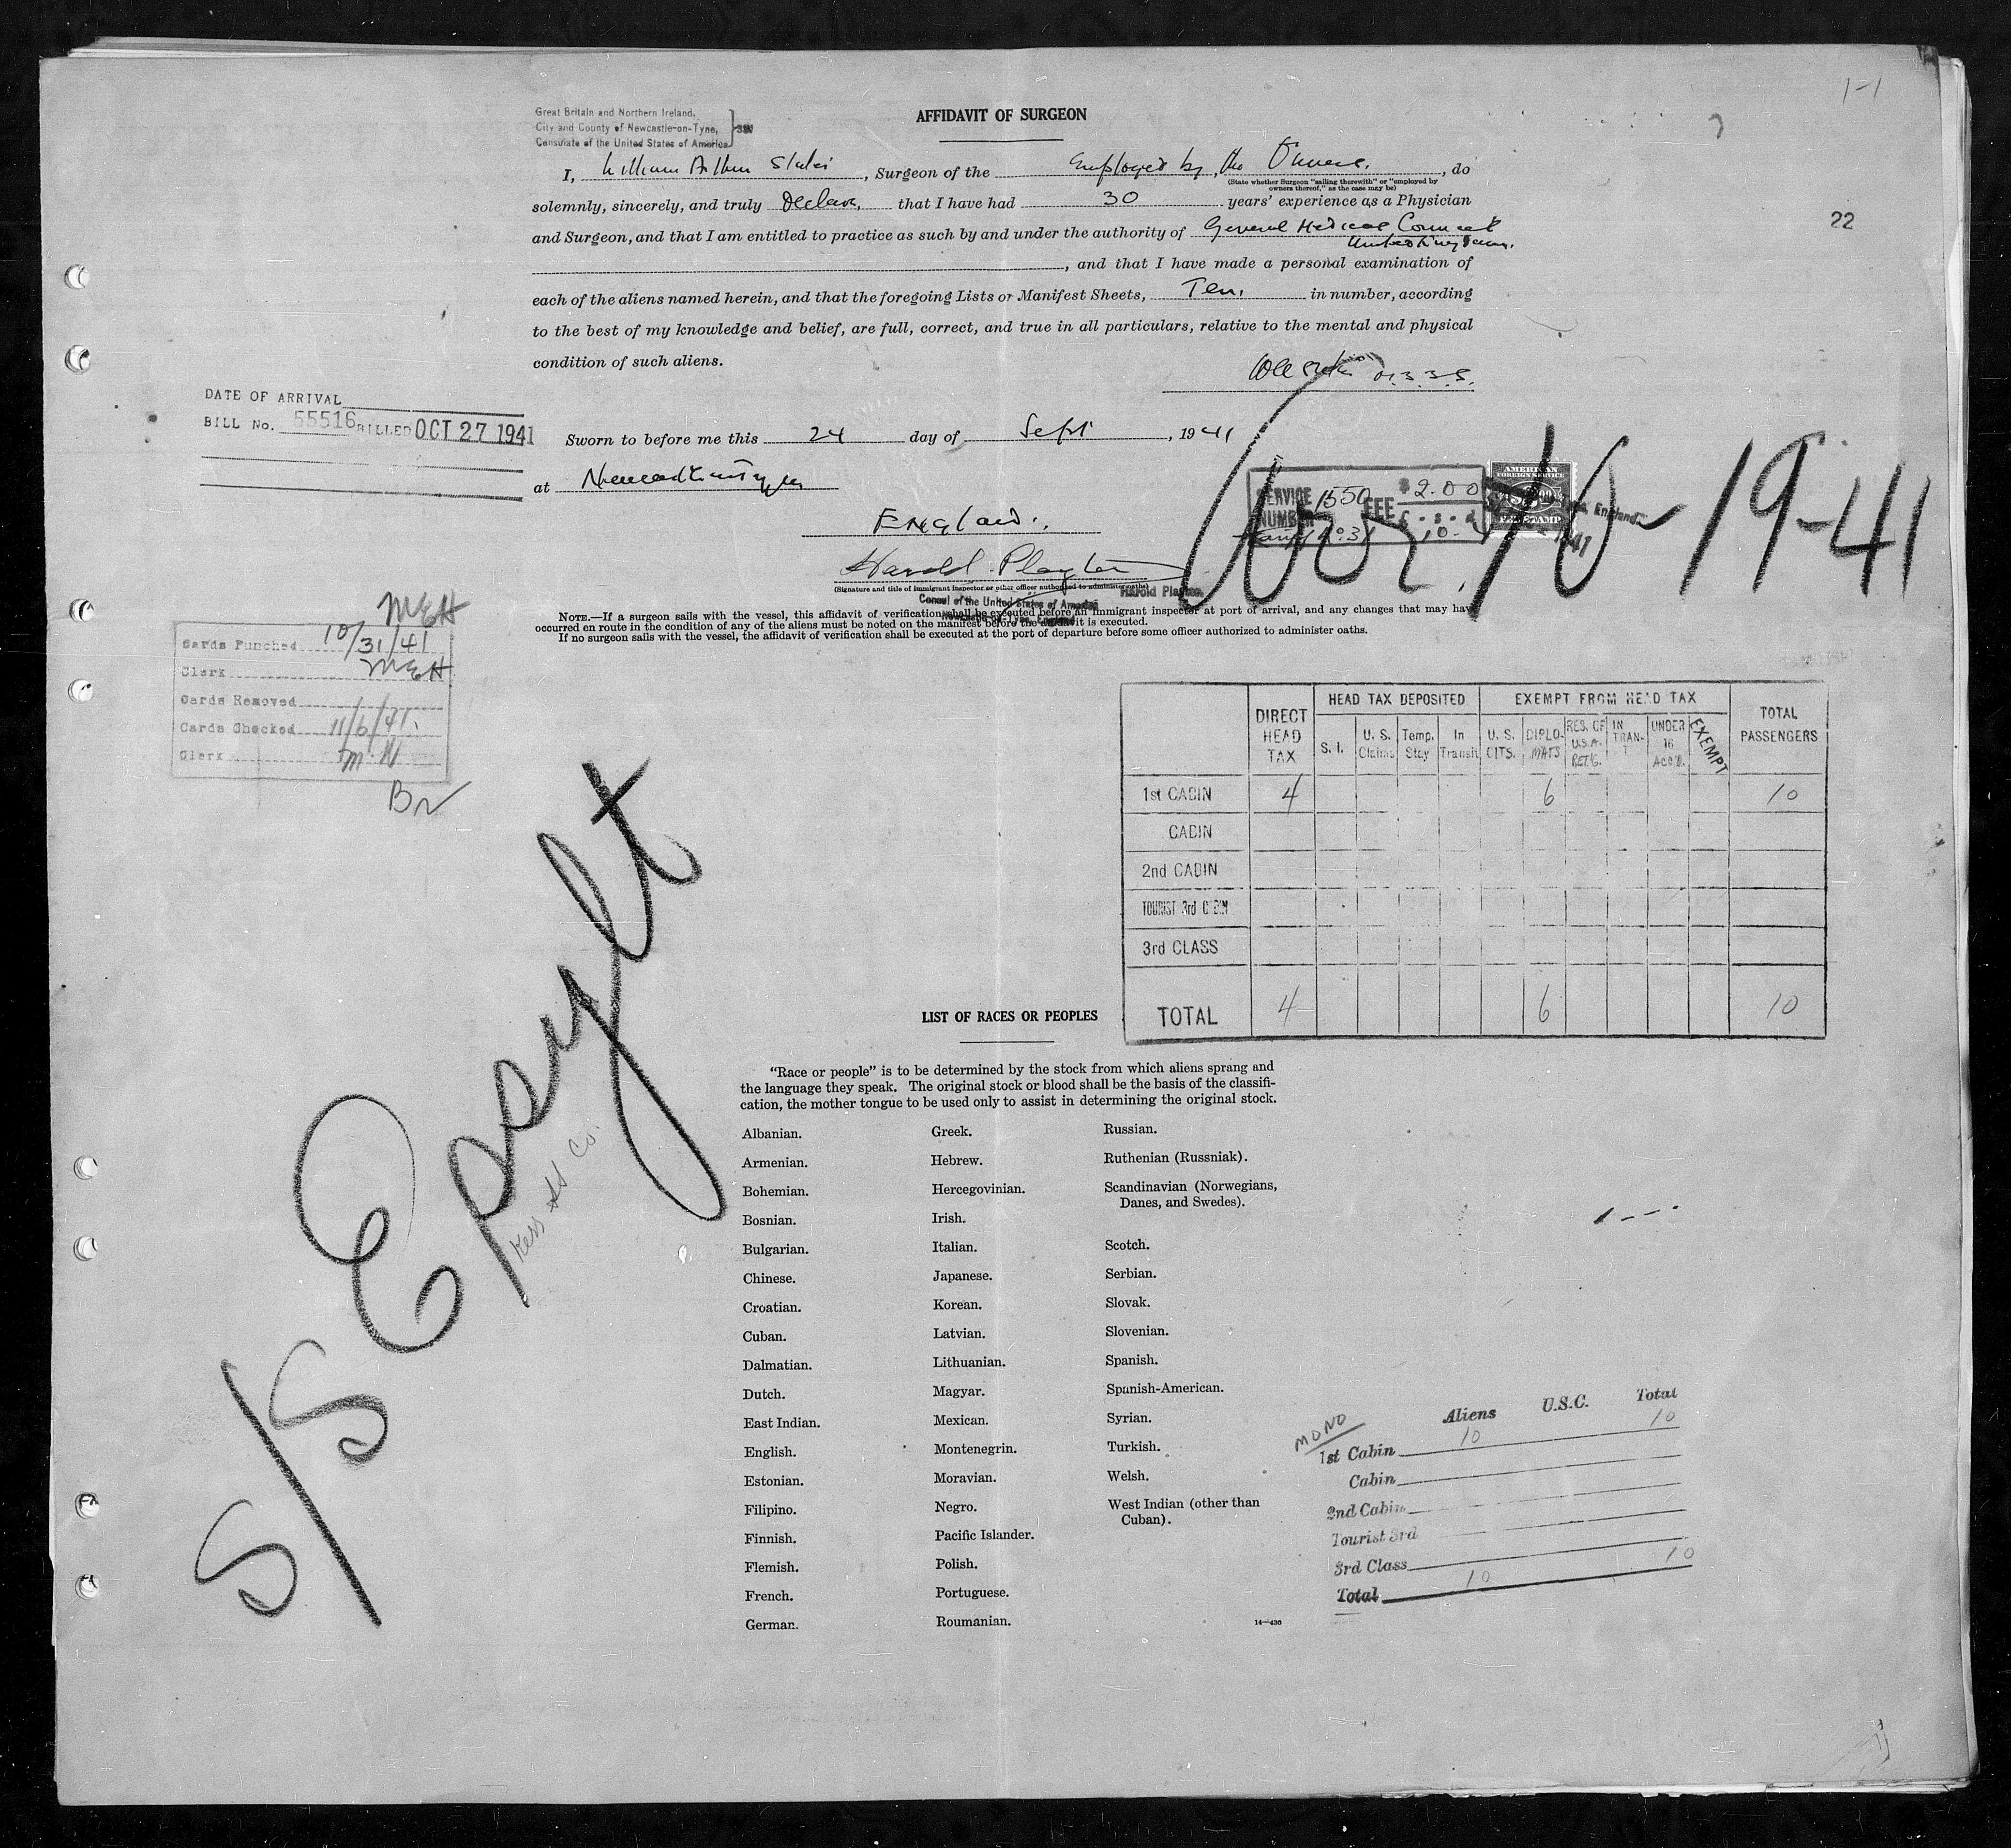 1-1
22
Great Britain and Northern Ireland,
City and County of Newcastle-on-Tyne,
Consulate of the United States of America.
AFFIDAVIT OF SURGEON
I, William Arthur , Surgeon of the Employed by the Owners. , do
(State whether Surgeon "sailing therewith" or "employed by owners thereof," as the case may be)
solemnly, sincerely, and truly Declare, that I have had 30 years' experience as a Physician
and Surgeon, and that I am entitled to practice as such by and under the authority of General Medical Council
United Kingdom.
, and that I have made a personal examination of
each of the aliens named herein, and that the foregoing Lists or Manifest Sheets, Ten. in number, according
to the best of my knowledge and belief, are full, correct, and true in all particulars, relative to the mental and physical
condition of such aliens.
DATE OF ARRIVAL
BILL No. 55516 BILLED OCT 27 1941
Sworn to before me this 24 day of Sept , 1941
at Newcastle on Tyne
England.
SERVICE NUMBER 1550 FEE $ 2.00
£ - s - d
AMERICAN
FOREIGN SERVICE
FEE STAMP
10-19-41
Harold Playter
(Signature and title of immigrant inspector or other officer authorized to administer oaths)
Harold Playter
Consul of the United States of America
Newcastle-on-Tyne, England
NOTE.—If a surgeon sails with the vessel, this affidavit of verification shall be executed before an immigrant inspector at port of arrival, and any changes that may have
occurred en route in the condition of any of the aliens must be noted on the manifest before the affidavit is executed.
If no surgeon sails with the vessel, the affidavit of verification shall be executed at the port of departure before some officer authorized to administer oaths.
MEH
Cards Punched 10/31/41
Clerk MEH
Cards Removed
Cards Checked 11/6/41.
Clerk M.H
DIRECT HEAD TAX
HEAD TAX DEPOSITED
EXEMPT FROM HEAD TAX
TOTAL PASSENGERS
S. I.
U. S. Claims
Temp. Stay
In Transit
U. S. CITS.
DIPLO-MATS
RES. OF U.S.A. RET'G.
IN TRAN-T
UNDER 16 ACC'D.
EXEMPT
1st CABIN 4 6 10
CABIN
2nd CABIN
TOURIST 3rd CABIN
3rd CLASS
TOTAL 4 6 10
S/S Egypt
SS Co.
LIST OF RACES OR PEOPLES
"Race or people" is to be determined by the stock from which aliens sprang and
the language they speak. The original stock or blood shall be the basis of the classifi-
cation, the mother tongue to be used only to assist in determining the original stock.
Albanian.
Armenian.
Bohemian.
Bosnian.
Bulgarian.
Chinese.
Croatian.
Cuban.
Dalmatian.
Dutch.
East Indian.
English.
Estonian.
Filipino.
Finnish.
Flemish.
French.
German.
Greek.
Hebrew.
Hercegovinian.
Irish.
Italian.
Japanese.
Korean.
Latvian.
Lithuanian.
Magyar.
Mexican.
Montenegrin.
Moravian.
Negro.
Pacific Islander.
Polish.
Portuguese.
Roumanian.
Russian.
Ruthenian (Russniak).
Scandinavian (Norwegians,
Danes, and Swedes).
Scotch.
Serbian.
Slovak.
Slovenian.
Spanish.
Spanish-American.
Syrian.
Turkish.
Welsh.
West Indian (other than
Cuban).
14—430
MONO
Aliens U.S.C. Total
1st Cabin 10 10
Cabin
2nd Cabin
Tourist 3rd
3rd Class
Total 10 10